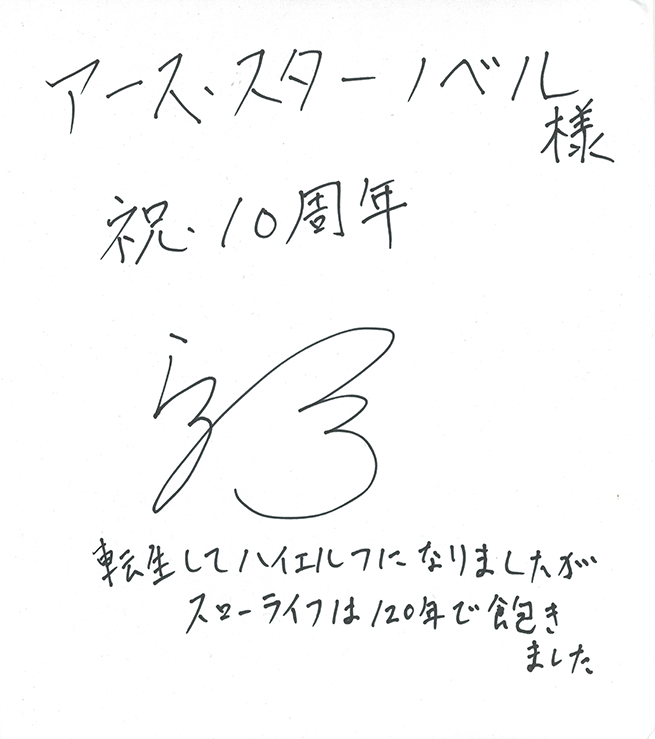 アース・スターノベル
様
祝・10周年
転生してハイエルフになりましたが
スローライフは120年で飽き
ました